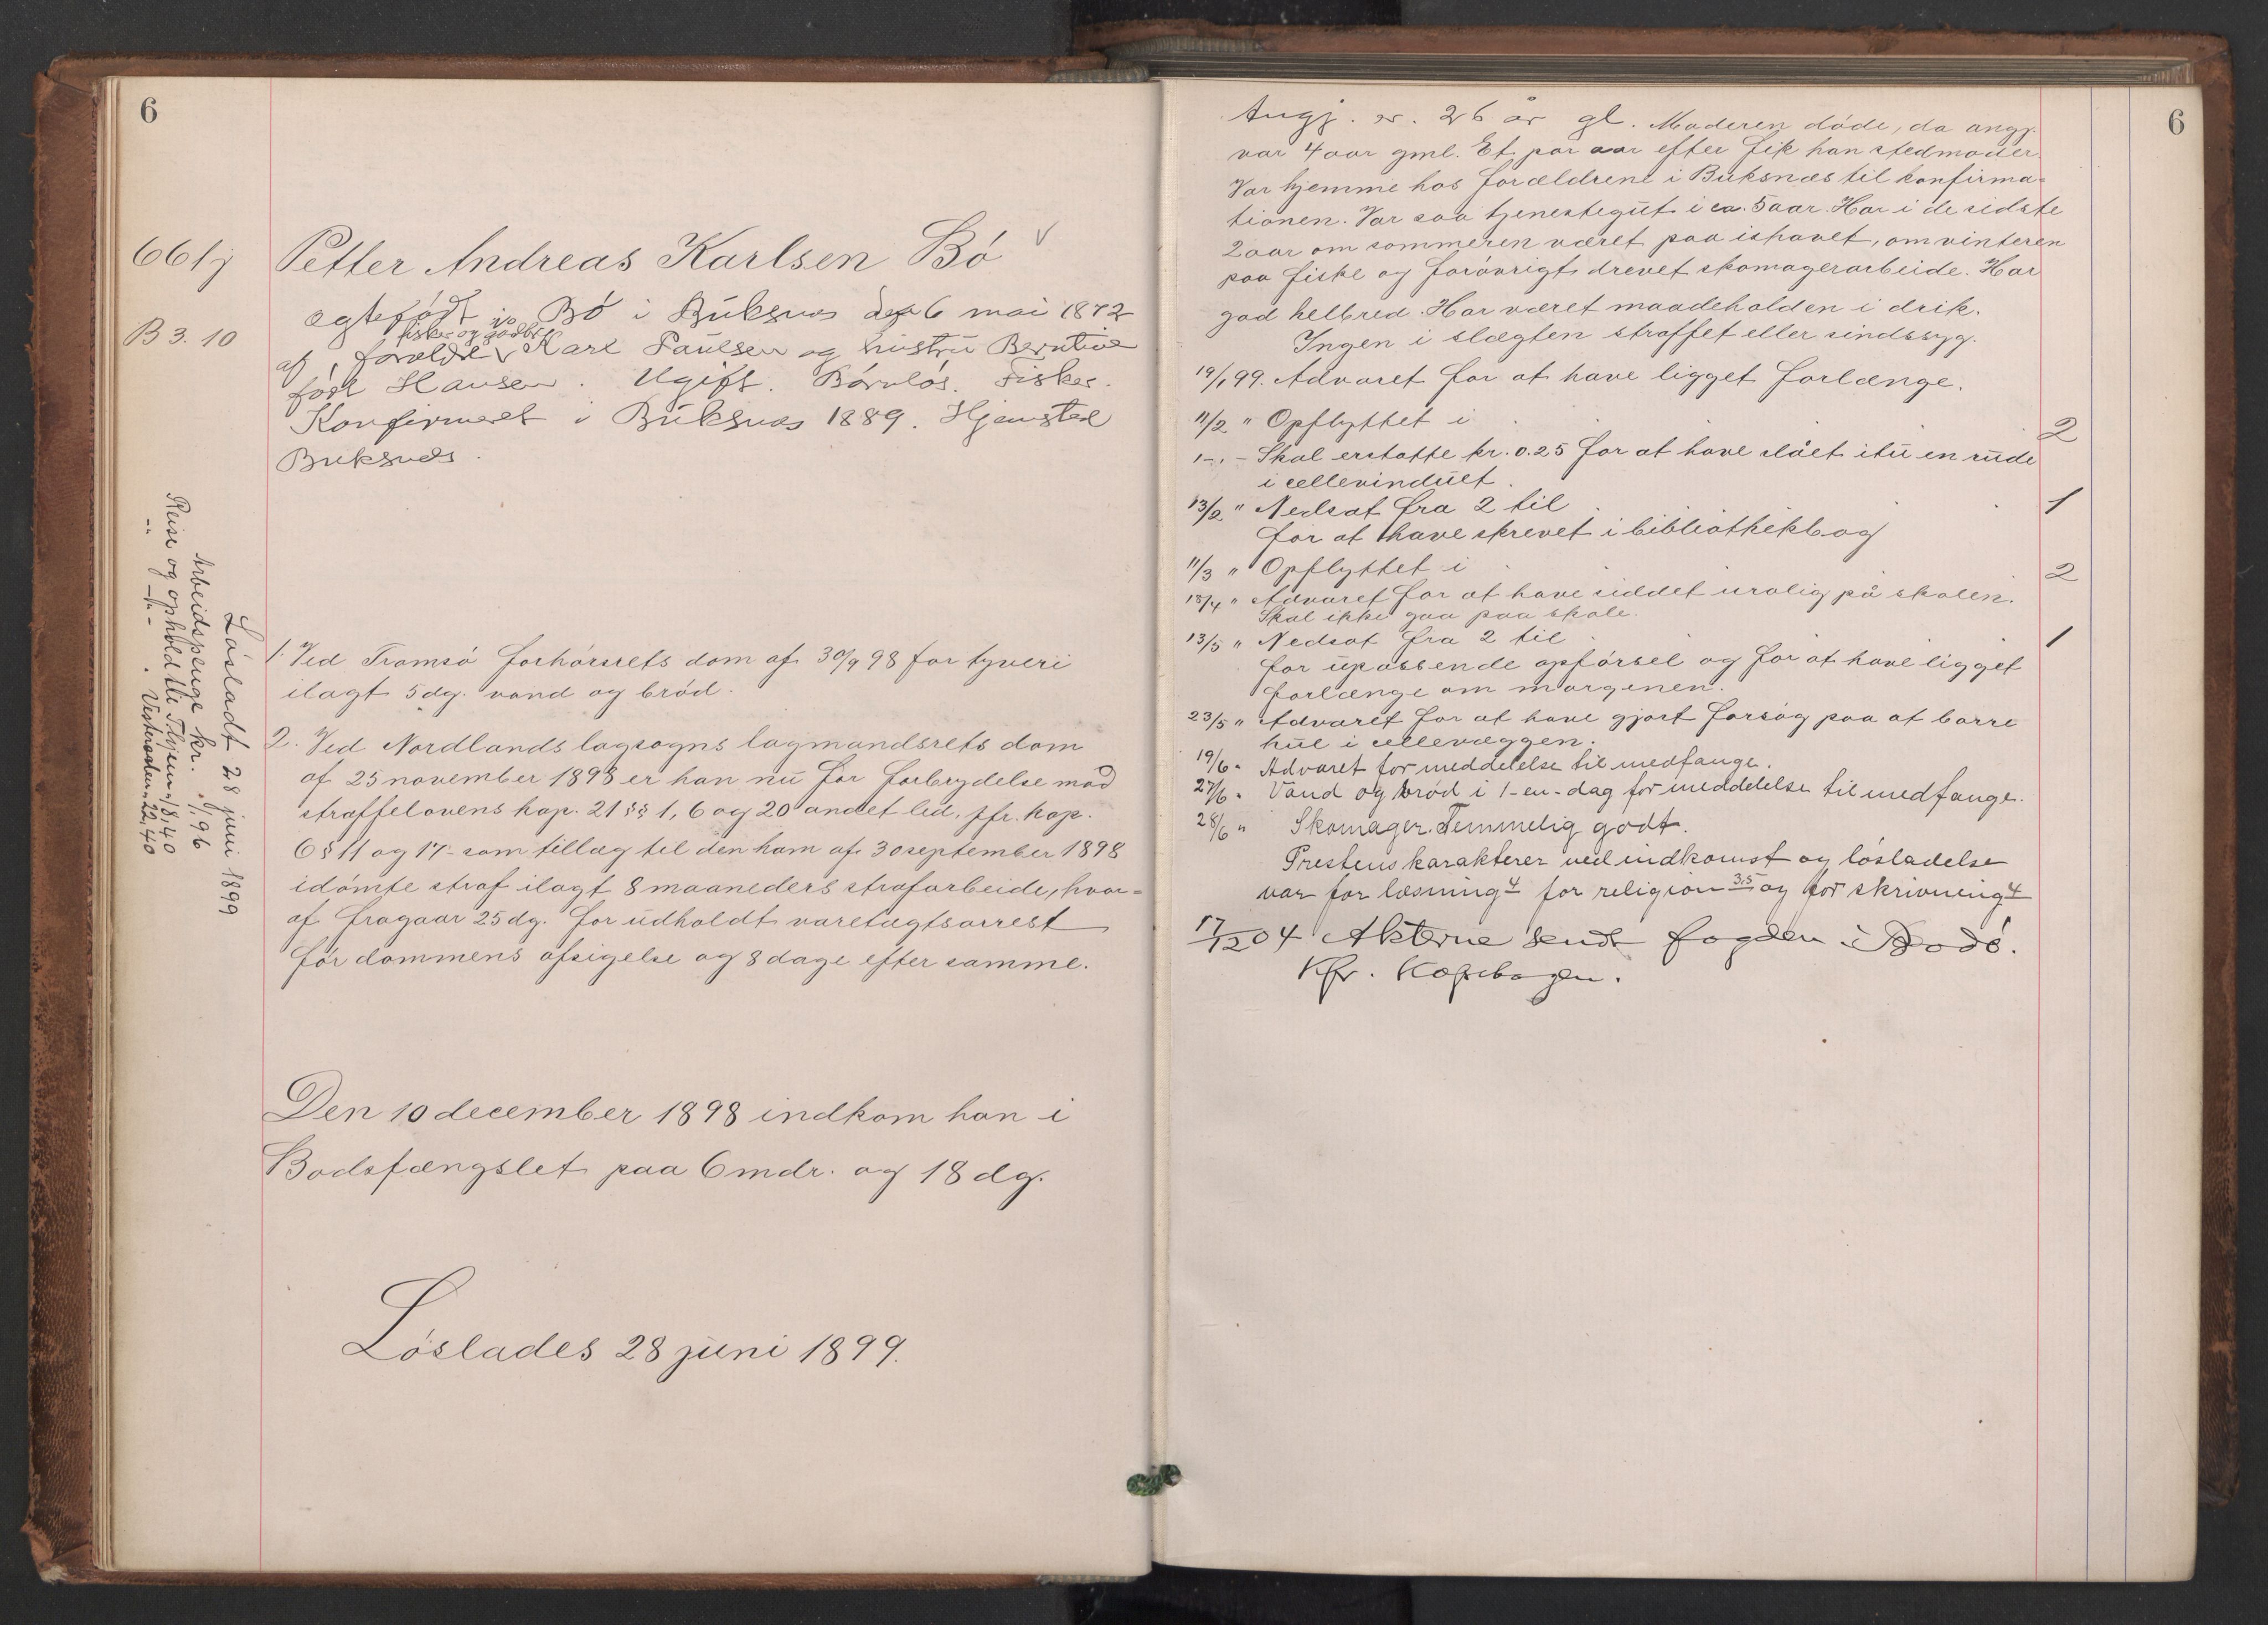 6
661j
Petter Andreas Karlsen Bó
B 3. 10
ægtefødt i Bó i Buksnæs den 6 mai 1872
fisker og
af forældre Karl Paulsen og hustru Berntine
født Hansen. Ugift. Barnløs. Fisker.
Konfirmeret i Buksnæs 1889. Hjemsted
Buksnæs.
Lósladt 28 juni 1899
Arbeidspenge kr. 1,96
Reise og ophold til " 18,40
" -"- . Vesteraalen " 22,40
1. Ved Tromsó forhórsrets dom af 30/9 98 for tyveri
ilagt 5 dg. vand og bród.
2. Ved Nordlands lagsogns lagmandsrets dom
af 25 november 1898 er han nu for forbrydelse mod
straffelovens kap. 21 §§ 1, 6 og 20 andet led, jfr. kap.
6 § 11 og 17 - som tillæg til den ham af 30 september 1898
idómte straf ilagt 8 maaneders strafarbeide, hvor=
af fragaar 25 dg. for udholdt varetægtsarrest
fór dommens afsigelse og 8 dage efter samme.
Den 10 december 1898 indkom han i
Bodsfængslet paa 6 mdr. og 18 dg.
Lóslades 28 juni 1899.
6
Angj. er. 26 år gl. Moderen dóde, da angj.
var 4 aar gml. Et par aar efter fik han stedmoder.
Var hjemme hos forældrene i Buksnæs til konfirma=
tionen. Var saa tjenestegut i ca. 5 aar. Har i de sidste
2 aar om sommeren været paa ishavet, om vinteren
paa fiske og forövrigt drevet skomagerarbeide. Har
god helbred. Har været maadeholden i drik.
Ingen i slægten straffet eller sindssyg.
19/1 99. Advaret for at have ligget forlænge.
11/2 " Opflyttet i . . . 2
-"- Skal erstatte kr. 0.25 for at have slået itu en rude
i cellevinduet.
13/2 " Nedsat fra 2 til . 1
for at have skrevet i bibliothekbog
11/3 " Opflyttet i . 2
18/4 " Advaret for at have siddet urolig på skolen.
Skal ikke gaa paa skole.
13/5 " Nedsat fra 2 til . 1
for upassende opfórsel og for at have ligget
forlænge om morgenen.
23/5 " Advaret for at have gjort forsóg paa at borre
hul i cellevæggen.
19/6 " Advaret for meddelelse til medfange.
27/6 " Vand og bród i 1 - en - dag for meddelelse til medfange.
28/6 " Skomager. Temmelig godt.
Prestens karakterer ved indkomst og lósladelse
var for læsning 4 for religion 3,5 og for skrivning 4
17/12 04 Akterne sendt fogden i Bodó.
Kfr. Kopibogen.